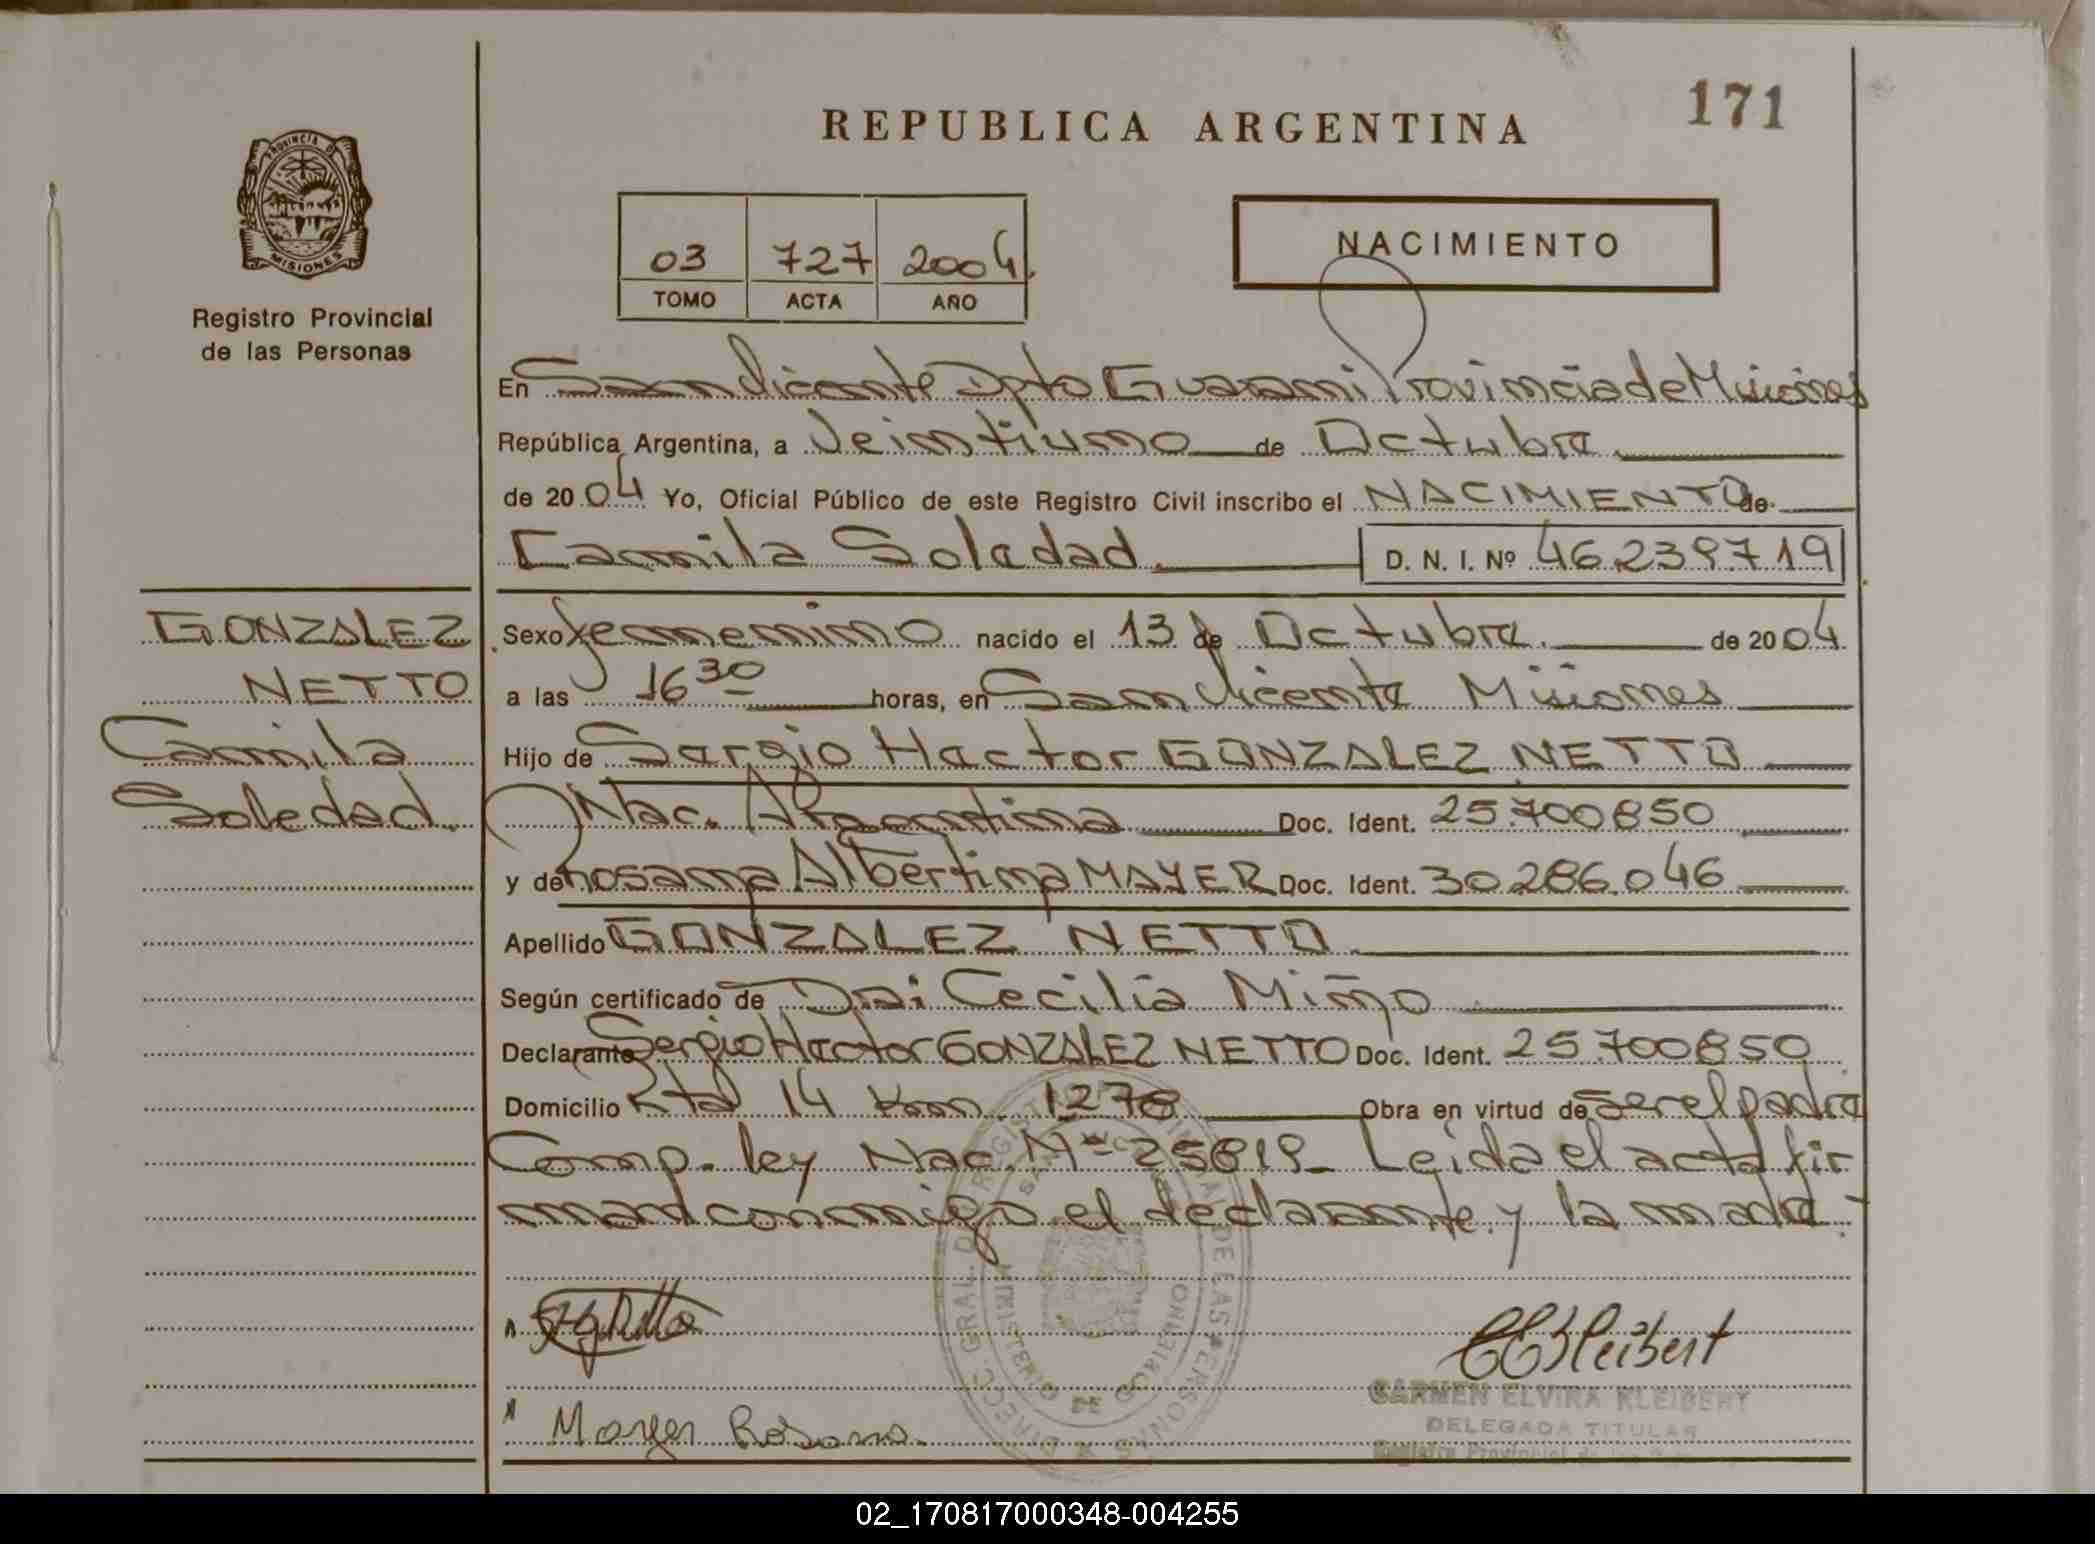 171
REPUBLICA ARGENTINA
PROVINCIA DE
MISIONES
Registro Provincial
de las Personas
03 727 2004
TOMO ACTA AÑO
NACIMIENTO
En San Vicente Dpto Guarani Provincia de Misiones
República Argentina, a Veintiuno de Octubre
de 2004 Yo, Oficial Público de este Registro Civil inscribo el NACIMIENTO de
Camila Soledad D. N. I. Nº 46.239.719
GONZALEZ
NETTO
Camila
Soledad
Sexo femenino nacido el 13 de Octubre de 2004
a las 16 30 horas, en San Vicente Misiones
Hijo de Sergio Hector GONZALEZ NETTO
Nac. Argentina Doc. Ident. 25.700850
y de Rosana Albertina MAYER Doc. Ident. 30.286.046
Apellido GONZALEZ NETTO
Según certificado de Dra: Cecilia Miño
Declarante Sergio Hector GONZALEZ NETTO Doc. Ident. 25.700850
Domicilio Rta 14 Km. 1278 Obra en virtud de ser el padre
Comp. ley Nac. Nº 25819- Leida el acta fir
man conmigo el declarante y la madre.-
CEKleibert
CARMEN ELVIRA KLEIBERT
DELEGADA TITULAR
Registro Provincial de las
Mayer Rosana.
DIRECC. GRAL. DE REGISTRO PROVINCIAL DE LAS PERSONAS
MINISTERIO DE GOBIERNO
02_170817000348-004255